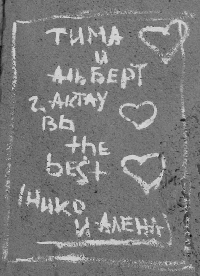 ТИМА
И
АЛЬБЕРТ
г. АКТАУ
ВЫ
the
best
(НИКО
И АЛЕНА)